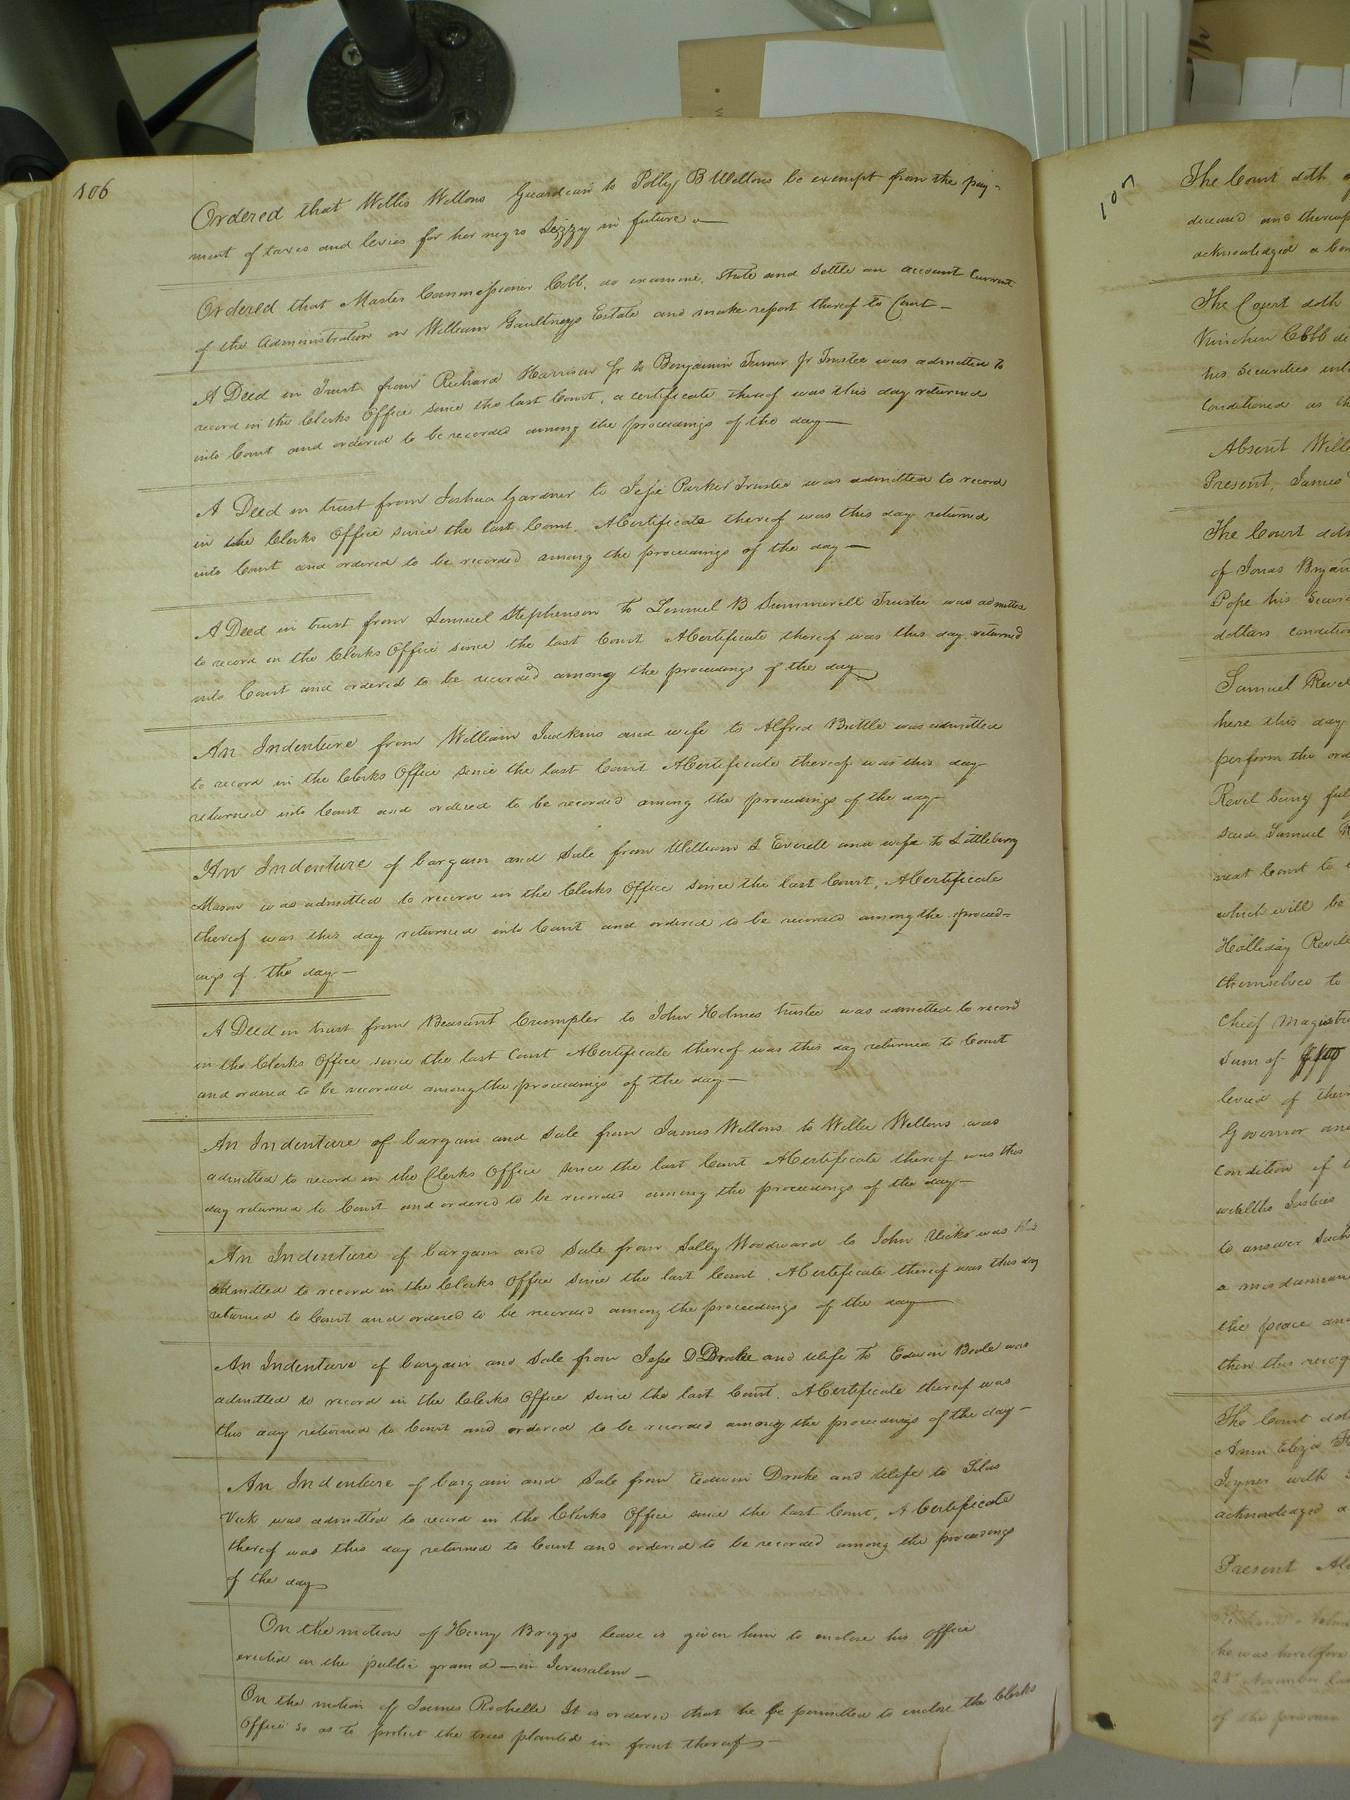 106
Ordered that Willis Wellons Guardian to Polly B Wellons be exempt from the pay-
ment of taxes and levies for her negro Lizzy in future
Ordered that Master Commissioner Cobb, do examine, State and Settle an account Current
of the Administration on William Gaultneys Estate and make report thereof to Court
A Deed in Trust from Richard Harrison Jr to Benjamin Turner Jr Trustee was admitted to
record in the Clerks Office since the last Court, a certificate thereof was this day returned
into Court and ordered to be recorded among the proceedings of the day
A Deed in trust from Joshua Gardner to Jesse Parker Trustee was admitted to record
in the Clerks Office since the last Court. A Certificate thereof was this day returned
into Court and ordered to be recorded among the proceedings of the day
A Deed in trust from Samuel Stephenson to Lemuel B Summerell Trustee was admitted
to record in the Clerks Office since the last Court A Certificate thereof was this day returned
into Court and ordered to be recorded among the proceedings of the day
An Indenture from William Judkins and wife to Alfred Bittle was admitted
to record in the Clerks Office since the last Court A Certificate thereof was this day
returned into Court and ordered to be recorded among the proceedings of the day
An Indenture of bargain and Sale from William S Everell and wife to Littlebury
Mason was admitted to record in the Clerks Office since the last Court, A Certificate
thereof was this day returned into Court and ordered to be recorded among the proceed=
ings of the day
A Deed in trust from Beasant Crumpler to John Holmes trustee was admitted to record
in the Clerks Office since the last Court A Certificate thereof was this day returned to Court
and ordered to be recorded among the proceedings of the day
An Indenture of bargain and Sale from James Wellons to Willie Wellons was
admitted to record in the Clerks Office since the last Court A Certificate thereof was this
day returned to Court and ordered to be recorded among the proceedings of the day
An Indenture of bargain and Sale from Sally Woodward to John Vicks was
admitted to record in the Clerks Office since the last Court. A Certificate thereof was this day
returned to Court and ordered to be recorded among the proceedings of the day
An Indenture of bargain and Sale from Jesse D Drake and Wife to Edwin Beale was
admitted to record in the Clerks Office since the last Court. A Certificate thereof was
this day returned to Court and ordered to be recorded among the proceedings of the day
An Indenture of bargain and Sale from Edwin Drake and Wife to Silas
Vick was admitted to record in the Clerks Office since the last Court, A Certificate
thereof was this day returned to Court and ordered to be recorded among the proceedings
of the day
On the motion of Henry Briggs leave is given him to enclose his office
erected on the public ground in Jerusalem
On the motion of James Rochelle It is ordered that he be permitted to enclose the Clerks
Office so as to protect the trees planted in front thereof
107
The Court doth
deceased and thereup
acknowledged a
The Court doth
Kinchen Cobb de
his Securities
Conditioned as th
Absent Will
Present, James
The Court doth
of Jonas Bryan
Pope his Secur
dollars condition
Samuel Revel
here this day
perform the ord
Revel being
said Samuel R
next Court to
which will be
Holliday Revel
themselves to
Chief Magistr
Sum of
levied of their
Governor and
Condition of
wealths Justices
to answer such
a misdemean
the peace and
then this recog
The Court doth
Ann Eliza
Joyner with
acknowledged a
Present
he was heretofore
23d November
of the prisoner